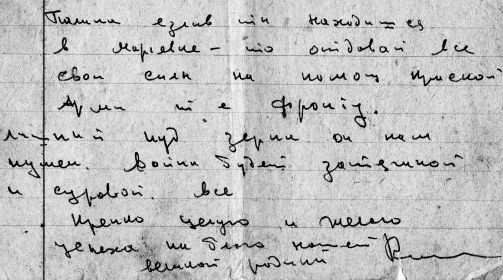 Галина если ты находишся
в Марьевке – то отдавай все
свои силы на помощ Красной
Арми т е фронту.
лишний пуд зерна он нам
нужен. Война будет затяжной
и суровой. все
крепко целую и желаю
успеха на благо нашей
великой родины